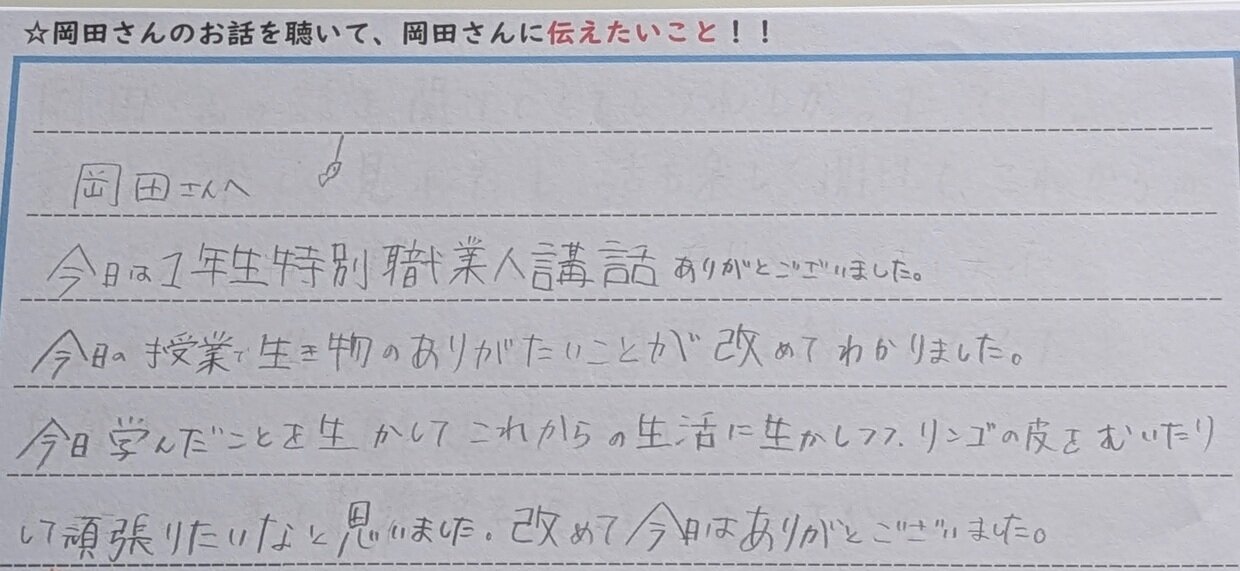 ☆岡田さんのお話を聴いて、岡田さんに伝えたいこと！！
岡田さんへ
今日は1年生特別職業人講話ありがとございました。
今日の授業で生き物のありがたいことが改めてわかりました。
今日学んだことを生かしてこれからの生活に生かしつつ、リンゴの皮をむいたり
して頑張りたいなと思いました。改めて今日はありがとございました。